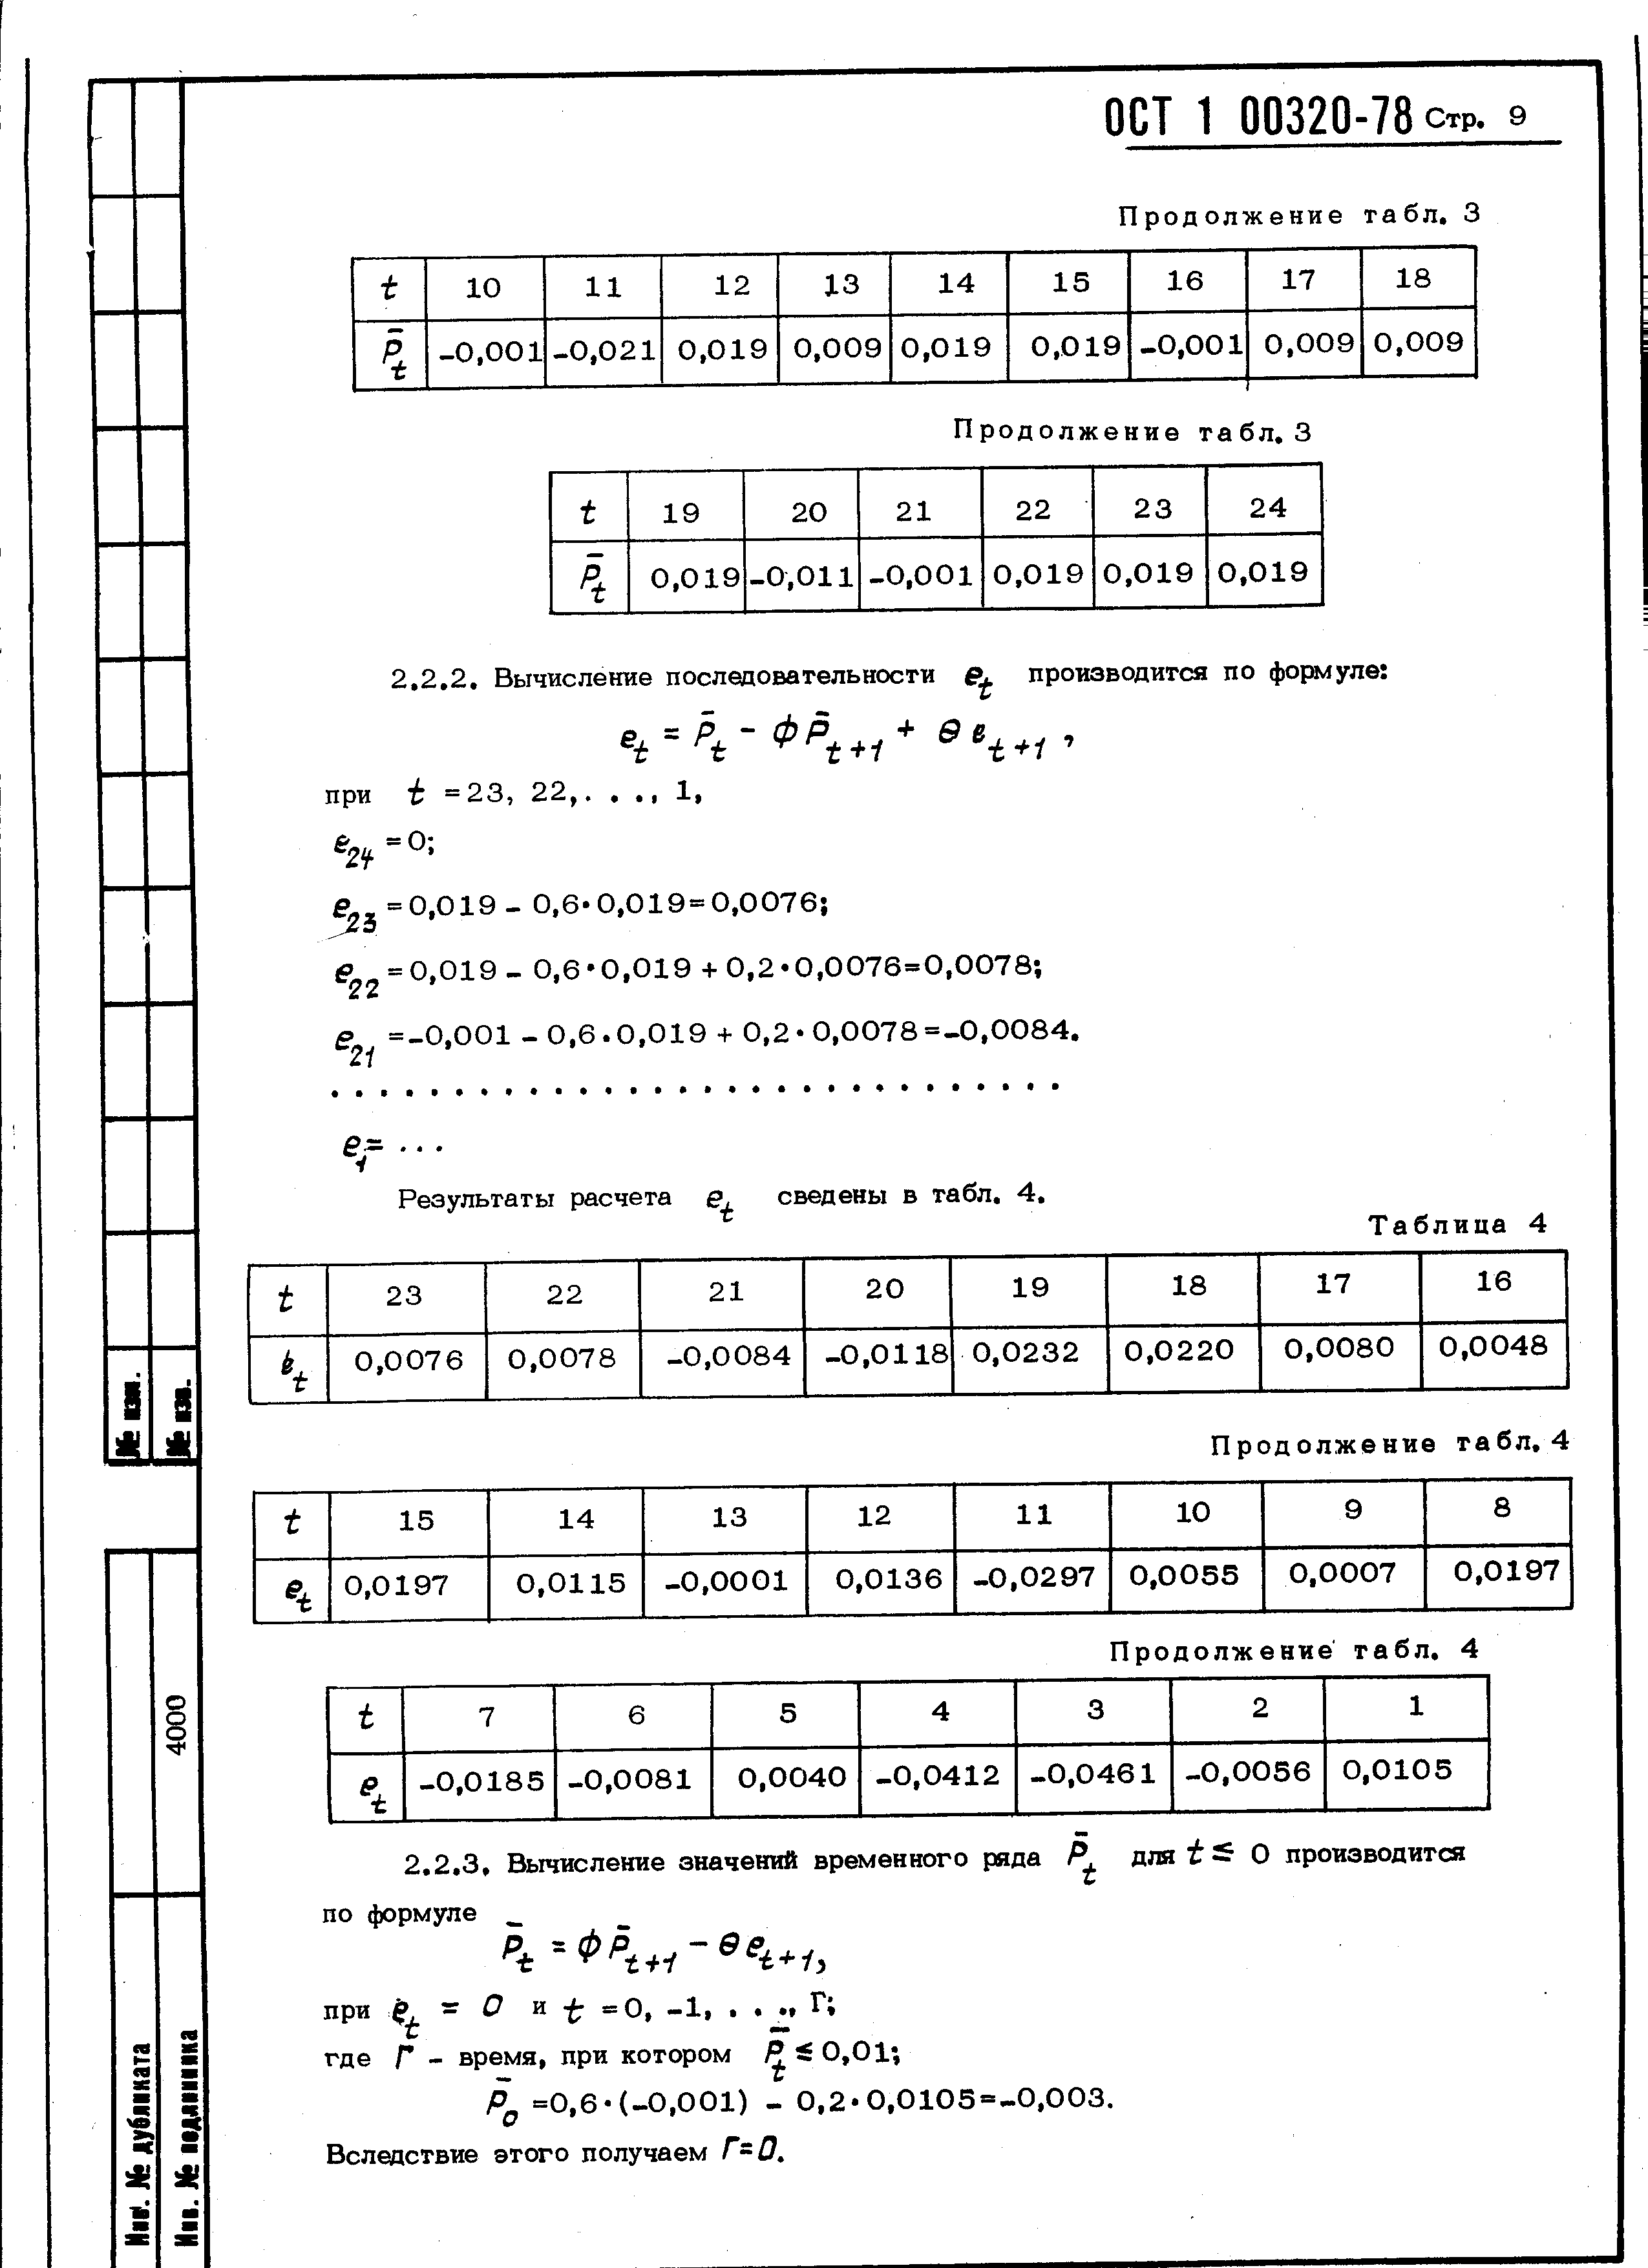 ОСТ 1 00320-78 Стр. 9
Продолжение табл. 3
t 10 11 12 13 14 15 16 17 18
P̄t -0,001 -0,021 0,019 0,009 0,019 0,019 -0,001 0,009 0,009
Продолжение табл. 3
t 19 20 21 22 23 24
P̄t 0,019 -0,011 -0,001 0,019 0,019 0,019
2.2.2. Вычисление последовательности et производится по формуле:
et = P̄t - ϕP̄t+1 + θet+1,
при t = 23, 22,. . ., 1,
e24 = 0;
e23 = 0,019 - 0,6·0,019=0,0076;
e22 = 0,019 - 0,6·0,019 + 0,2·0,0076=0,0078;
e21 = -0,001 - 0,6·0,019 + 0,2·0,0078=-0,0084.
. . . . . . . . . . . . . . . . . . . . . . . . . . . . . .
e1= ...
Результаты расчета et сведены в табл. 4.
Таблица 4
t 23 22 21 20 19 18 17 16
et 0,0076 0,0078 -0,0084 -0,0118 0,0232 0,0220 0,0080 0,0048
Продолжение табл. 4
t 15 14 13 12 11 10 9 8
et 0,0197 0,0115 -0,0001 0,0136 -0,0297 0,0055 0,0007 0,0197
Продолжение табл. 4
t 7 6 5 4 3 2 1
et -0,0185 -0,0081 0,0040 -0,0412 -0,0461 -0,0056 0,0105
2.2.3. Вычисление значений временного ряда P̄t для t ≤ 0 производится
по формуле
P̄t = ϕP̄t+1 - θet+1,
при et = 0 и t = 0, -1, . . ., Г;
где Г - время, при котором P̄t ≤ 0,01;
P̄0 = 0,6·(-0,001) - 0,2·0,0105=-0,003.
Вследствие этого получаем Г=0.
№ изм.
№ изв.
4000
Инв. № дубликата
Инв. № подлинника